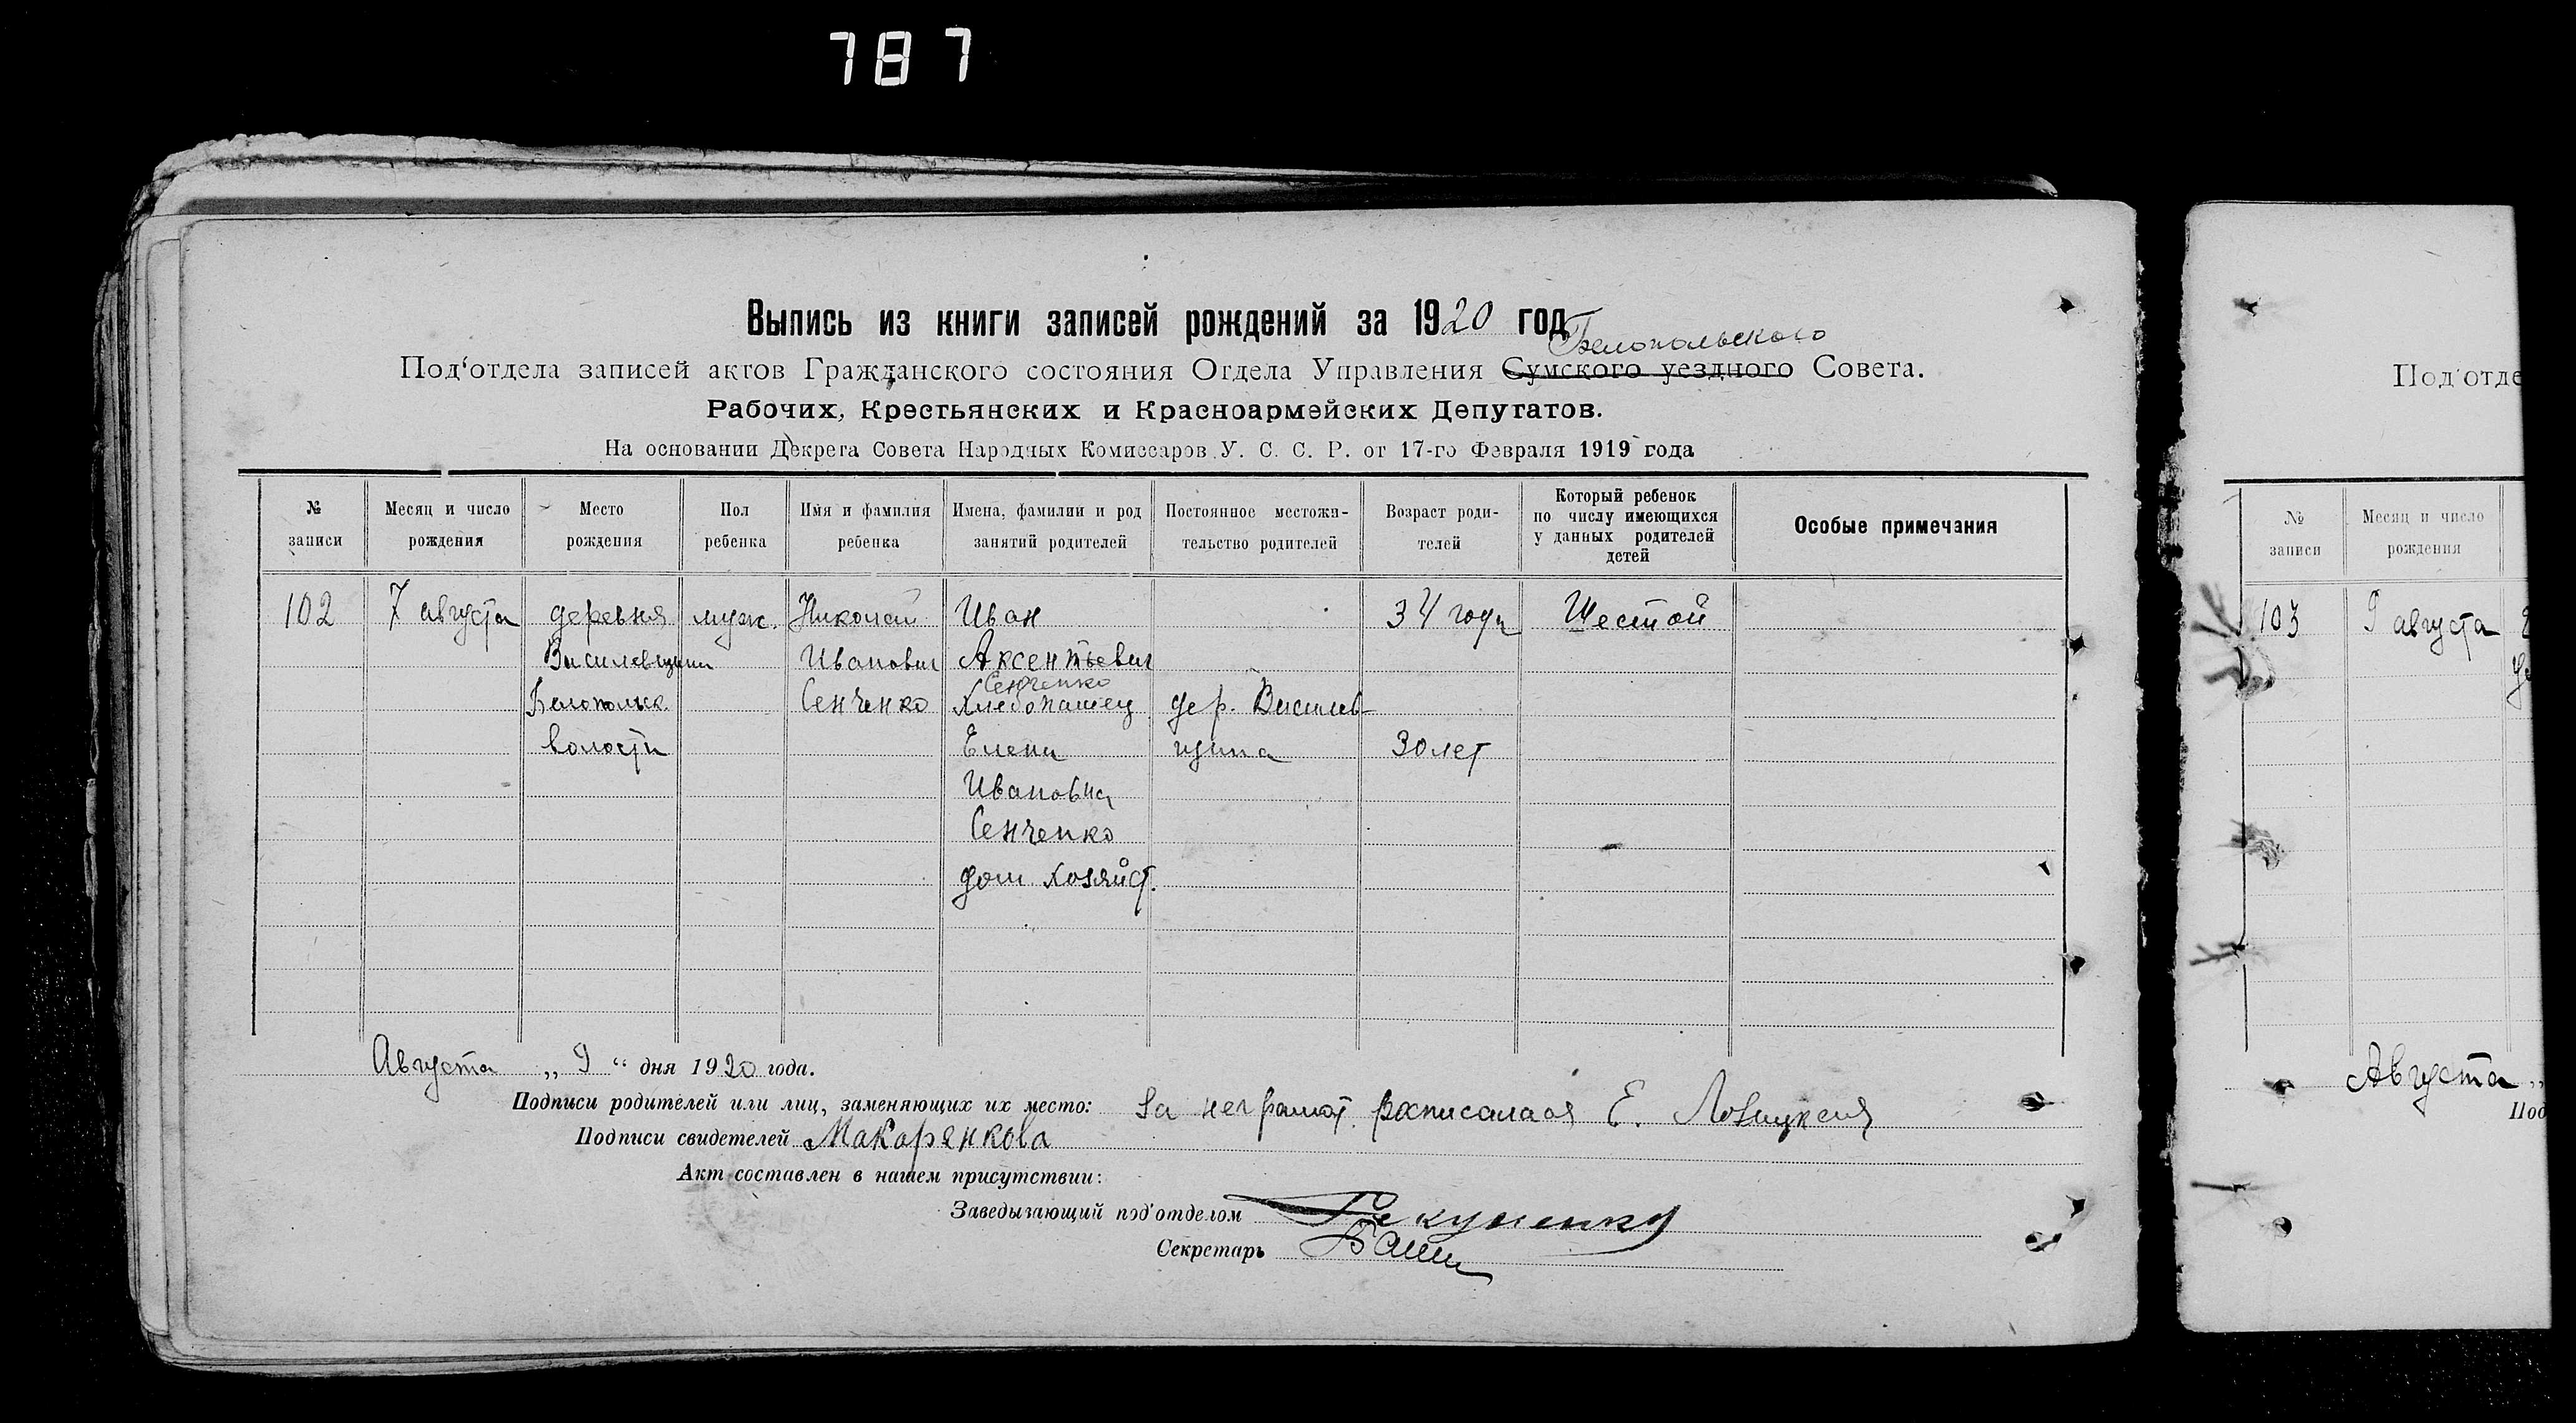 787
Выпись из книги записей рождений за 1920 год
Белопольского
Под'отдела записей актов Гражданского состояния Отдела Управления Сумского уездного Совета.
Рабочих, Крестьянских и Красноармейских Депутатов.
На основании Декрета Совета Народных Комиссаров У. С. С. Р. от 17-го Февраля 1919 года
№ записи
Месяц и число рождения
Место рождения
Пол ребенка
Имя и фамилия ребенка
Имена, фамилии и род занятий родителей
Постоянное местожи-тельство родителей
Возраст роди-телей
Который ребенок по числу имеющихся у данных родителей детей
Особые примечания
102 7 августа деревня муж. Николай Иван 34 года Шестой
Василевщина Иванович Аксентьевич
Сенченко
Белопольск. Сенченко Хлебопашец дер. Василев-
волости Елена щина 30 лет
Ивановна
Сенченко
дом хозяйст.
Августа „ 9 “ дня 1920 года.
Подписи родителей или лиц, заменяющих их место: За неграмот. расписалася Е.
Подписи свидетелей Макаренкова
Акт составлен в нашем присутствии:
Заведывающий под'отделом
Секретарь
Под'отде
№ записи
Месяц и число рождения
103 9 августа
Августа „
Под